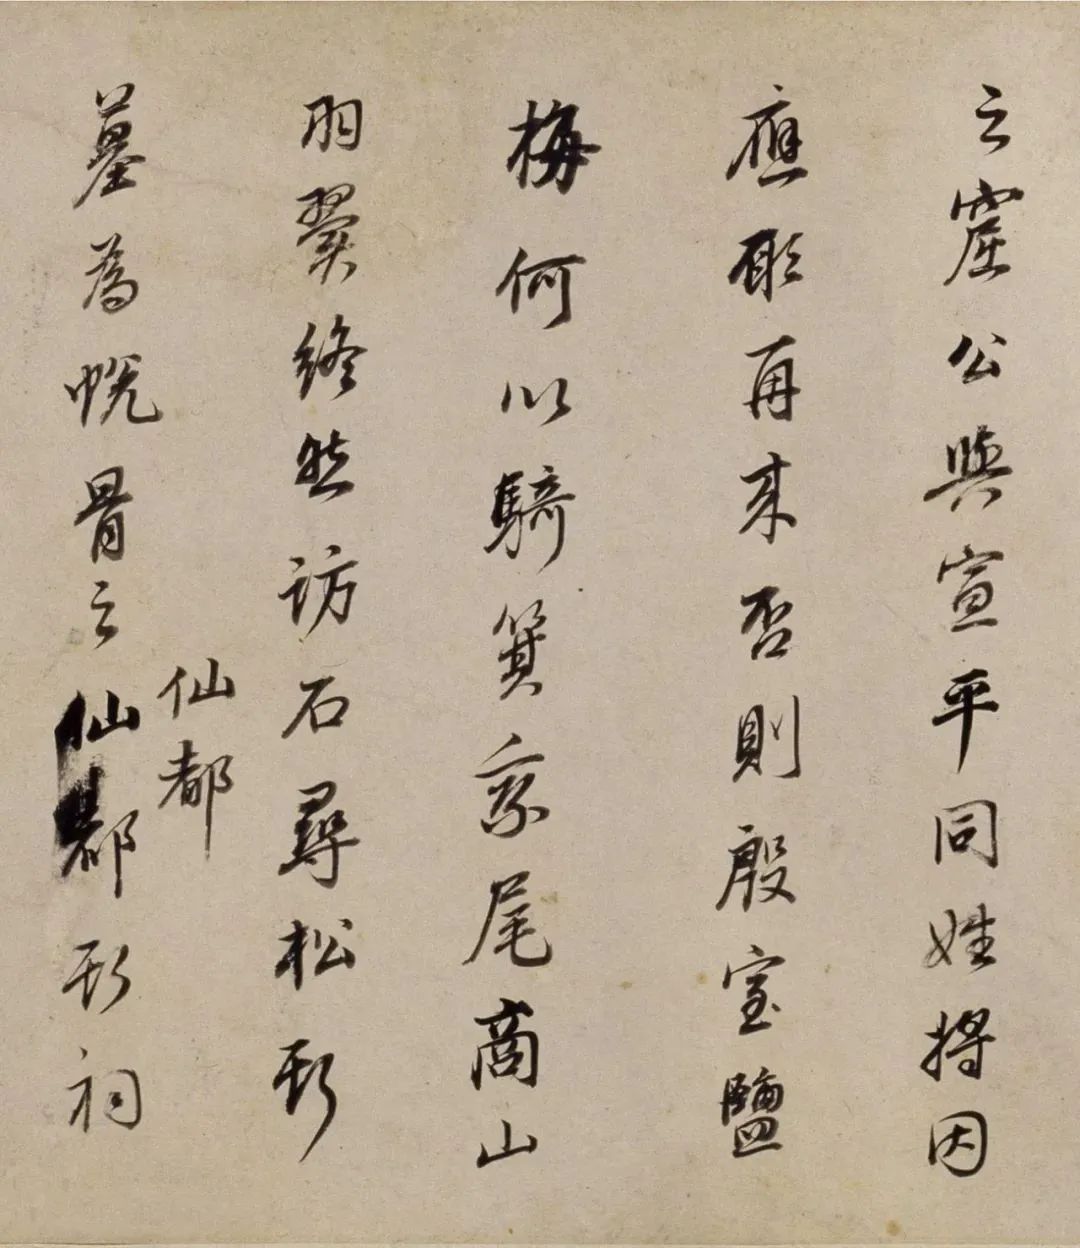 之窟公與宣平同姓將因
應再来否則殷室鹽
梅何以騎箕尾商山
羽翼終然訪石尋松斯
仙都
墓為蛻骨之仙都斯祠